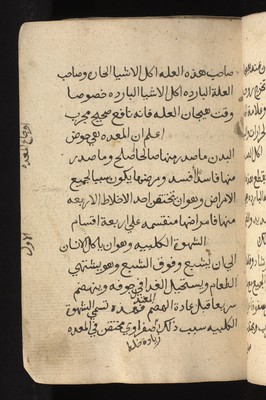 صاحب هذه العله اكل الاشيا الحاره وصاحب
العلة البارده اكل الاشيا البارده خصوصا
وقت هيجان العله فانه نافع صحيح مجرب
اعلم ان المعده هي حوض
البدن ما صدر منها صالحا صلح وما صدر
منها فاسدا فسد ومرضها يكون سببا لجميع
الامراض وهو ان يختنق احد الاخلاط الاربعه
منها فامراضها منقسمه على اربعة اقسام
الشهوة الكلبيه وهو ان ياكل الانسان
الى ان يشبع وفوق الشبع وهو يشتهي
الطعام ويستحيل الغدا في جوفه وينهضم
سريعا قبل عادة الهضم فهذه تسمى الشهوة
المعتدل
الكلبيه سبب ذلك صفراوي مختنق في المعده
زيادة خلط
اوجاع المعده
الاول